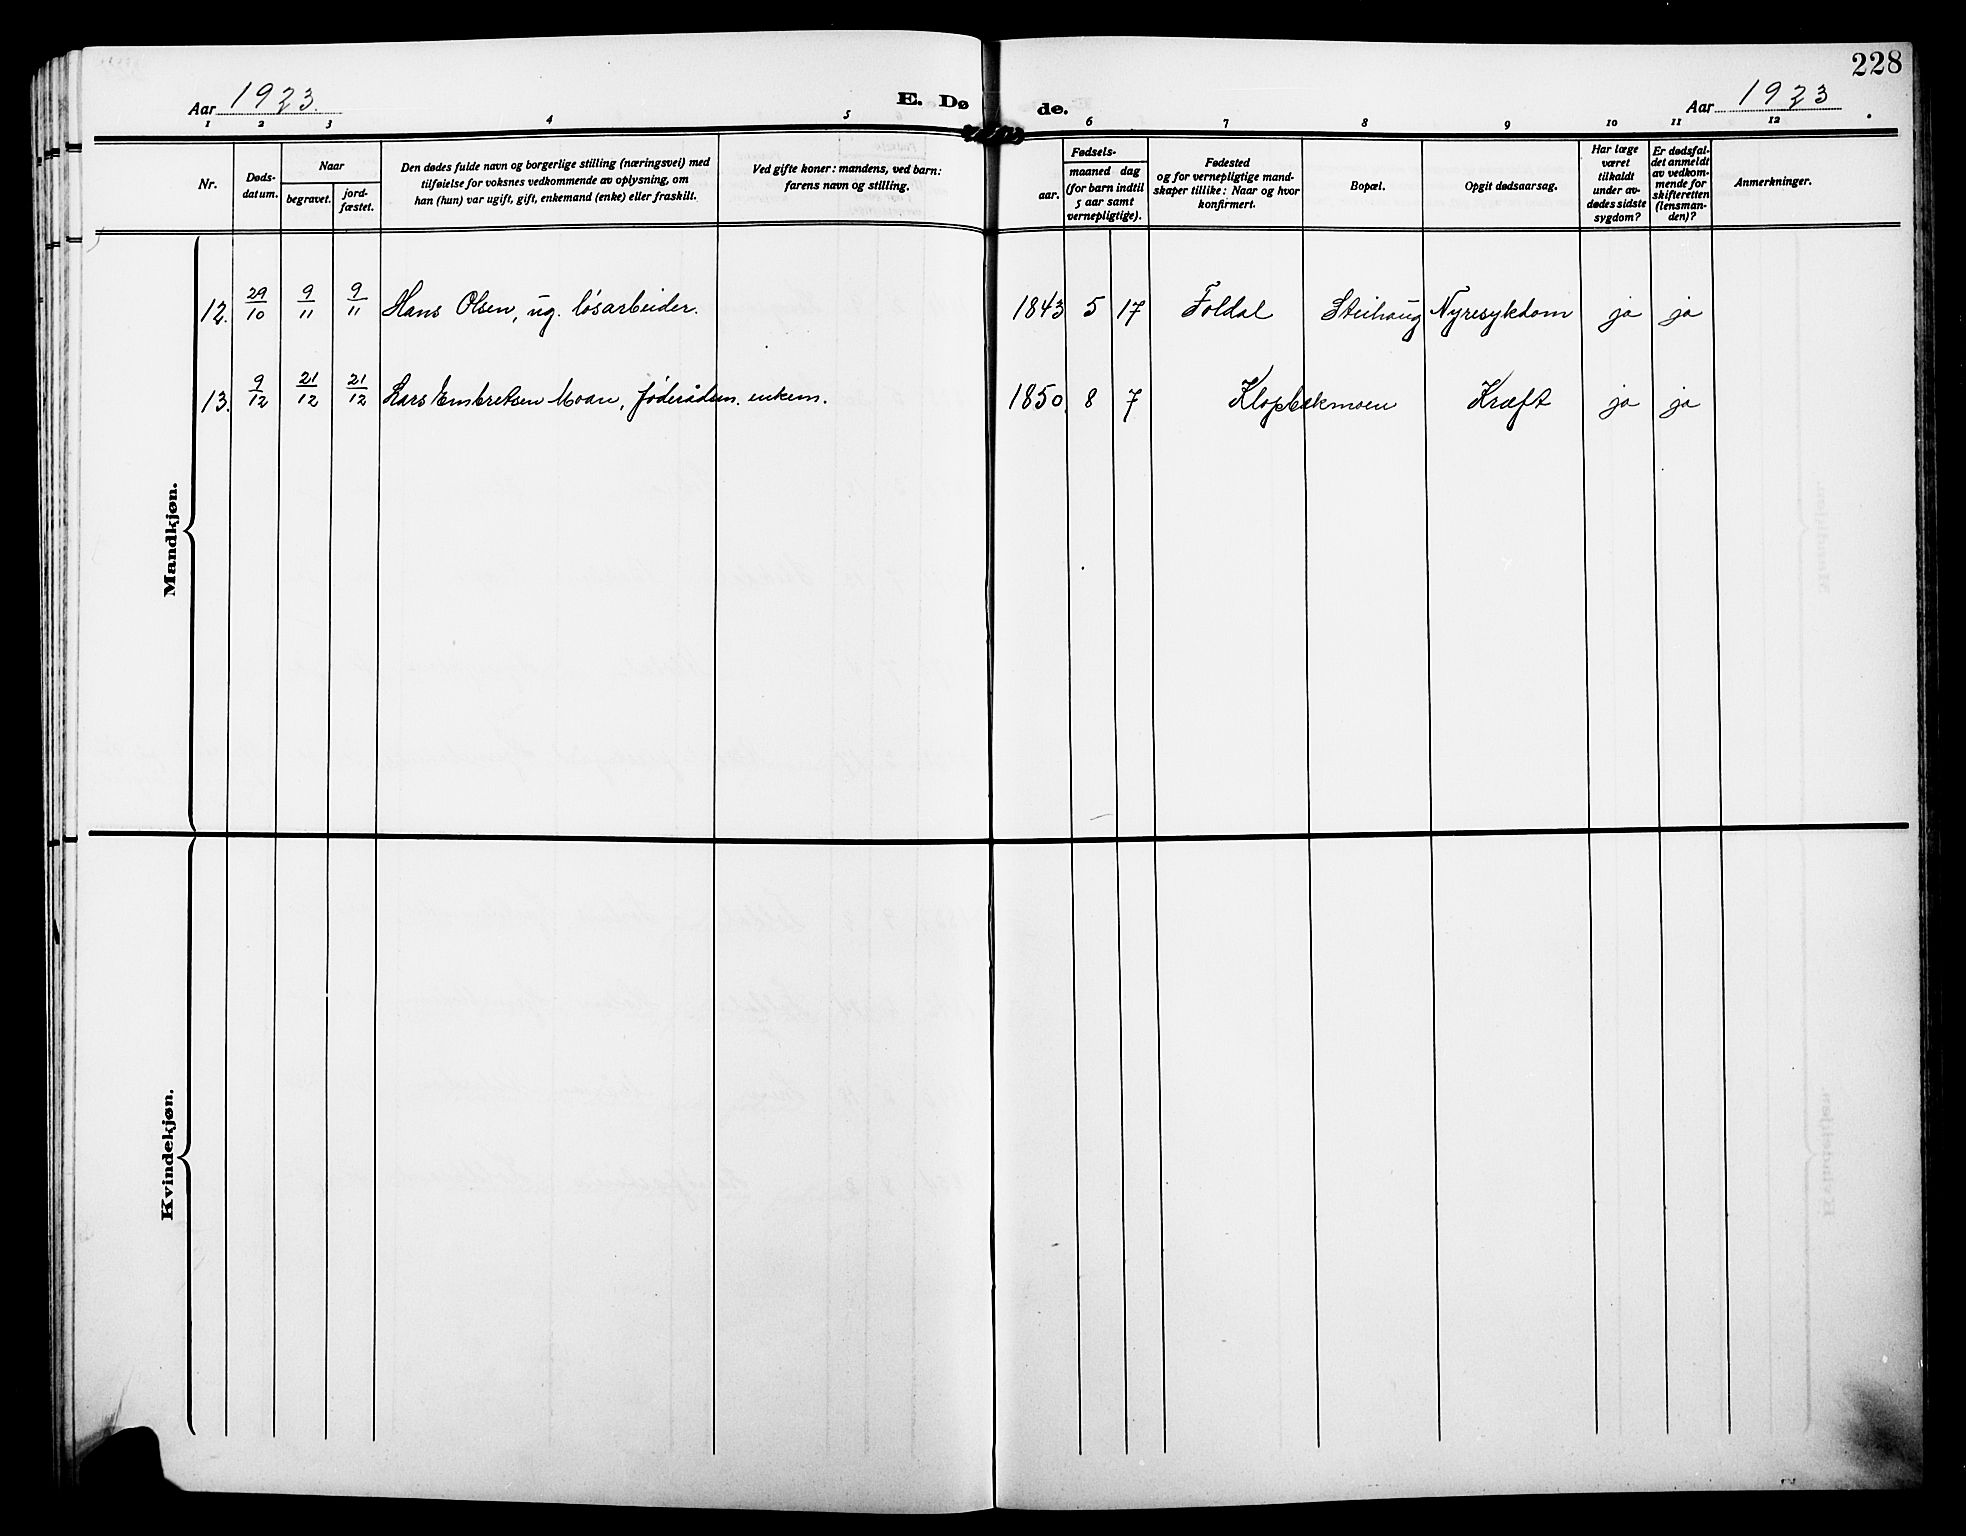 228
Aar 1923. E. Dø de. Aar 1923
1 2 3 4 5 6 7 8 9 10 11 12
Nr.
Døds-
datum.
Naar
begravet.
jord-
fæstet.
Den dødes fulde navn og borgerlige stilling (næringsvei) med
tilføielse for voksnes vedkommende av oplysning, om
han (hun) var ugift, gift, enkemand (enke) eller fraskilt.
Ved gifte koner: mandens, ved barn:
farens navn og stilling.
Fødsels-
aar.
maaned dag
(for barn indtil
5 aar samt
vernepligtige).
Fødested
og for vernepligtige mand-
skaper tillike: Naar og hvor
konfirmert.
Bopæl.
Opgit dødsaarsag.
Har læge
været
tilkaldt
under av-
dødes sidste
sygdom?
Er dødsfal-
det anmeldt
av vedkom-
mende for
skifteretten
(lensman-
den)?
Anmerkninger.
Mandkjøn.
12. 29/10 9/11 9/11 Hans Olsen, ug. løsarbeider. 1843 5 17 Foldal Steihaug Nyresykdom ja ja
13. 9/12 21/12 21/12 Lars Embretsen Moan, føderådsm. enkem. 1850. 8 7 Klopbekmoen Kræft ja ja
Kvindekjøn.